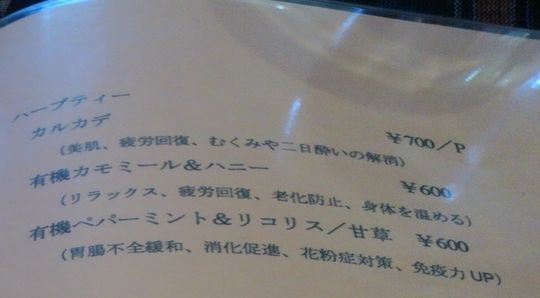 ハーブティー
カルカデ ￥700/P
(美肌、疲労回復、むくみや二日酔いの解消)
有機カモミール&ハニー ￥600
(リラックス、疲労回復、老化防止、身体を温める)
有機ペパーミント&リコリス/甘草 ￥600
(胃腸不全緩和、消化促進、花粉症対策、免疫力UP)